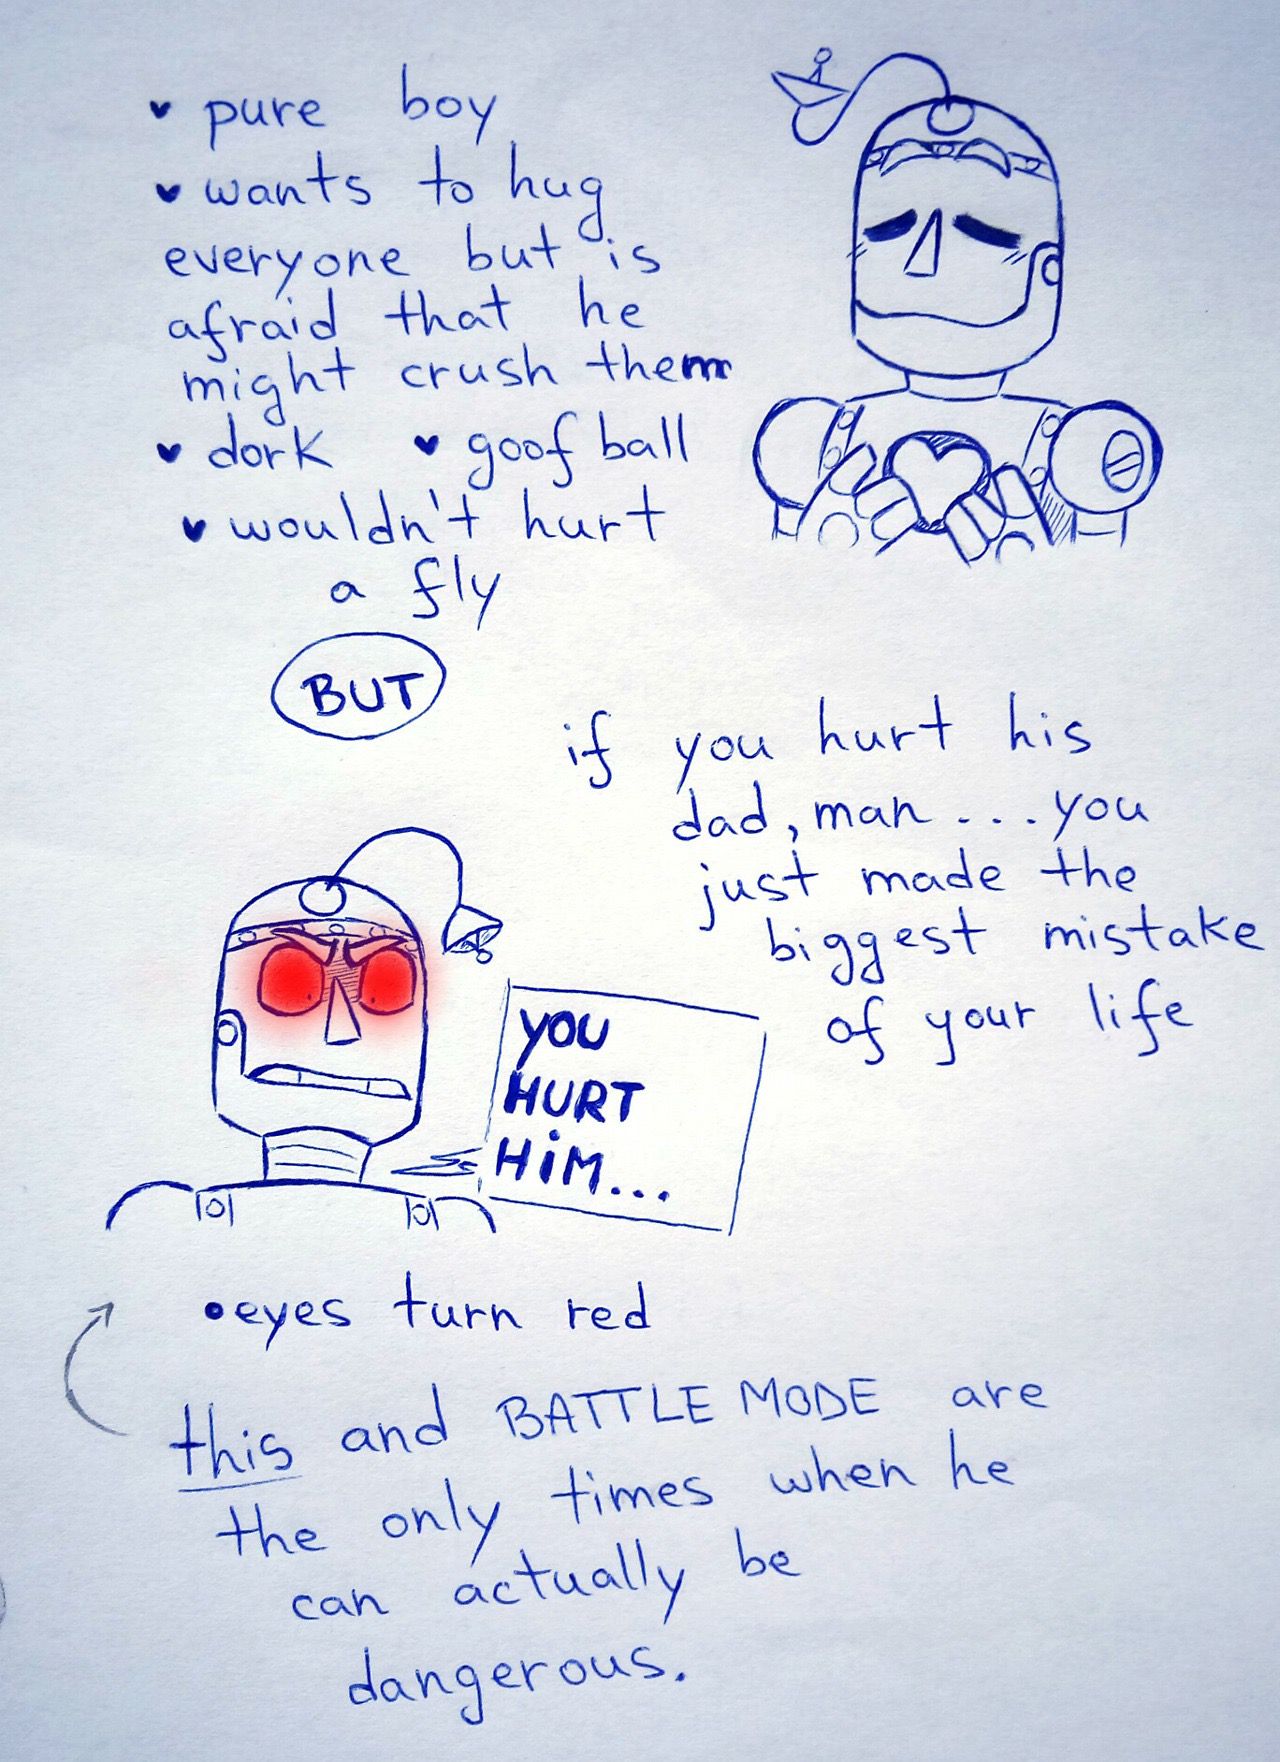 pure boy
wants to hug
everyone but is
afraid that he
might crush them
dork goofball
wouldn't hurt
a fly
BUT
if you hurt his
dad, man...you
just made the
biggest mistake
of your life
YOU
HURT
HiM...
eyes turn red
this and BATTLE MODE are
the only times when he
can actually be
dangerous.